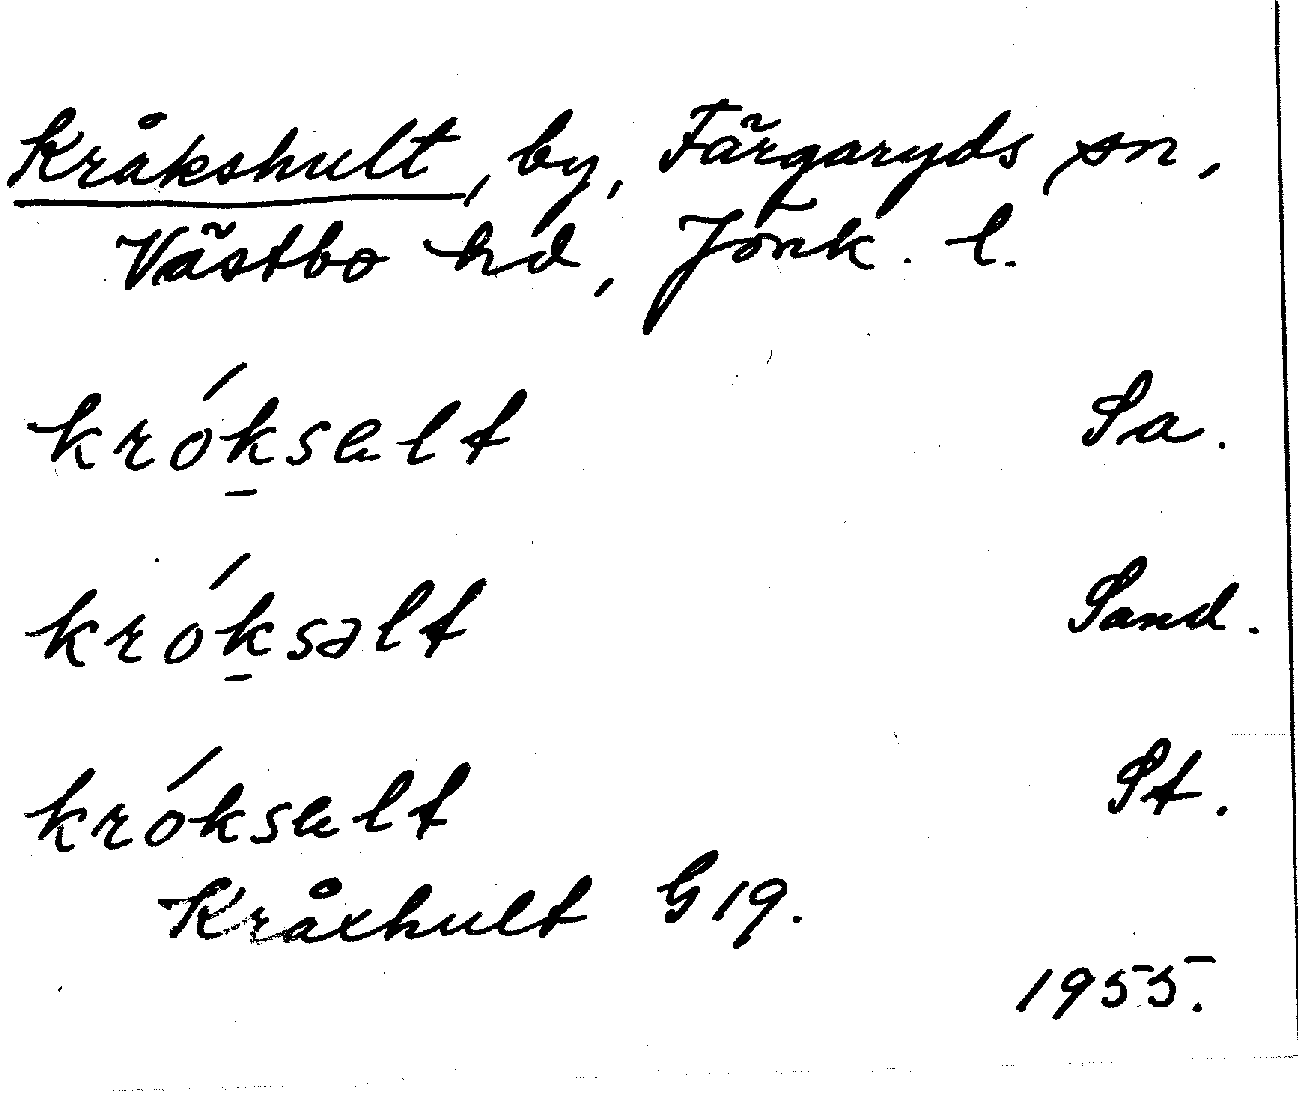 Kråkshult, by, Färgaryds sn,
Västbo hd, Jönk. l.
króḵsɐlt Sa.
króḵsəlt Sand.
króksɐlt St.
Kråxhult G 19.
1955.